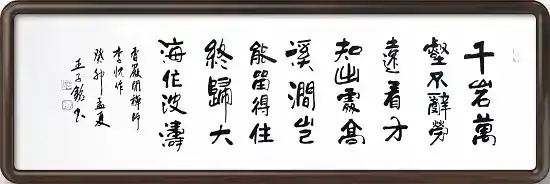 千岩萬
壑不辭勞
遠看才
知出處高
溪澗豈
能留得住
終歸大
海作波濤
香嚴閑禪師
李忱作
癸卯孟夏